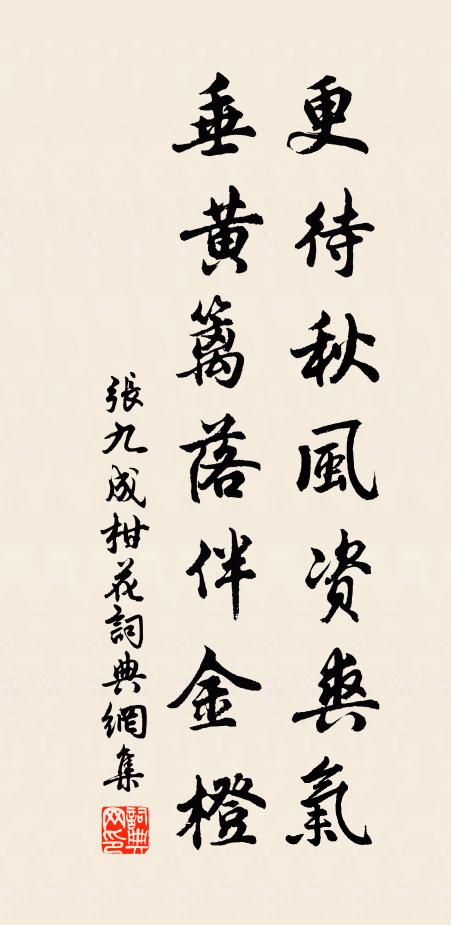 更待秋風資爽氣
垂黄籬落伴金橙
張九成柑花詞典網集
詞典網印